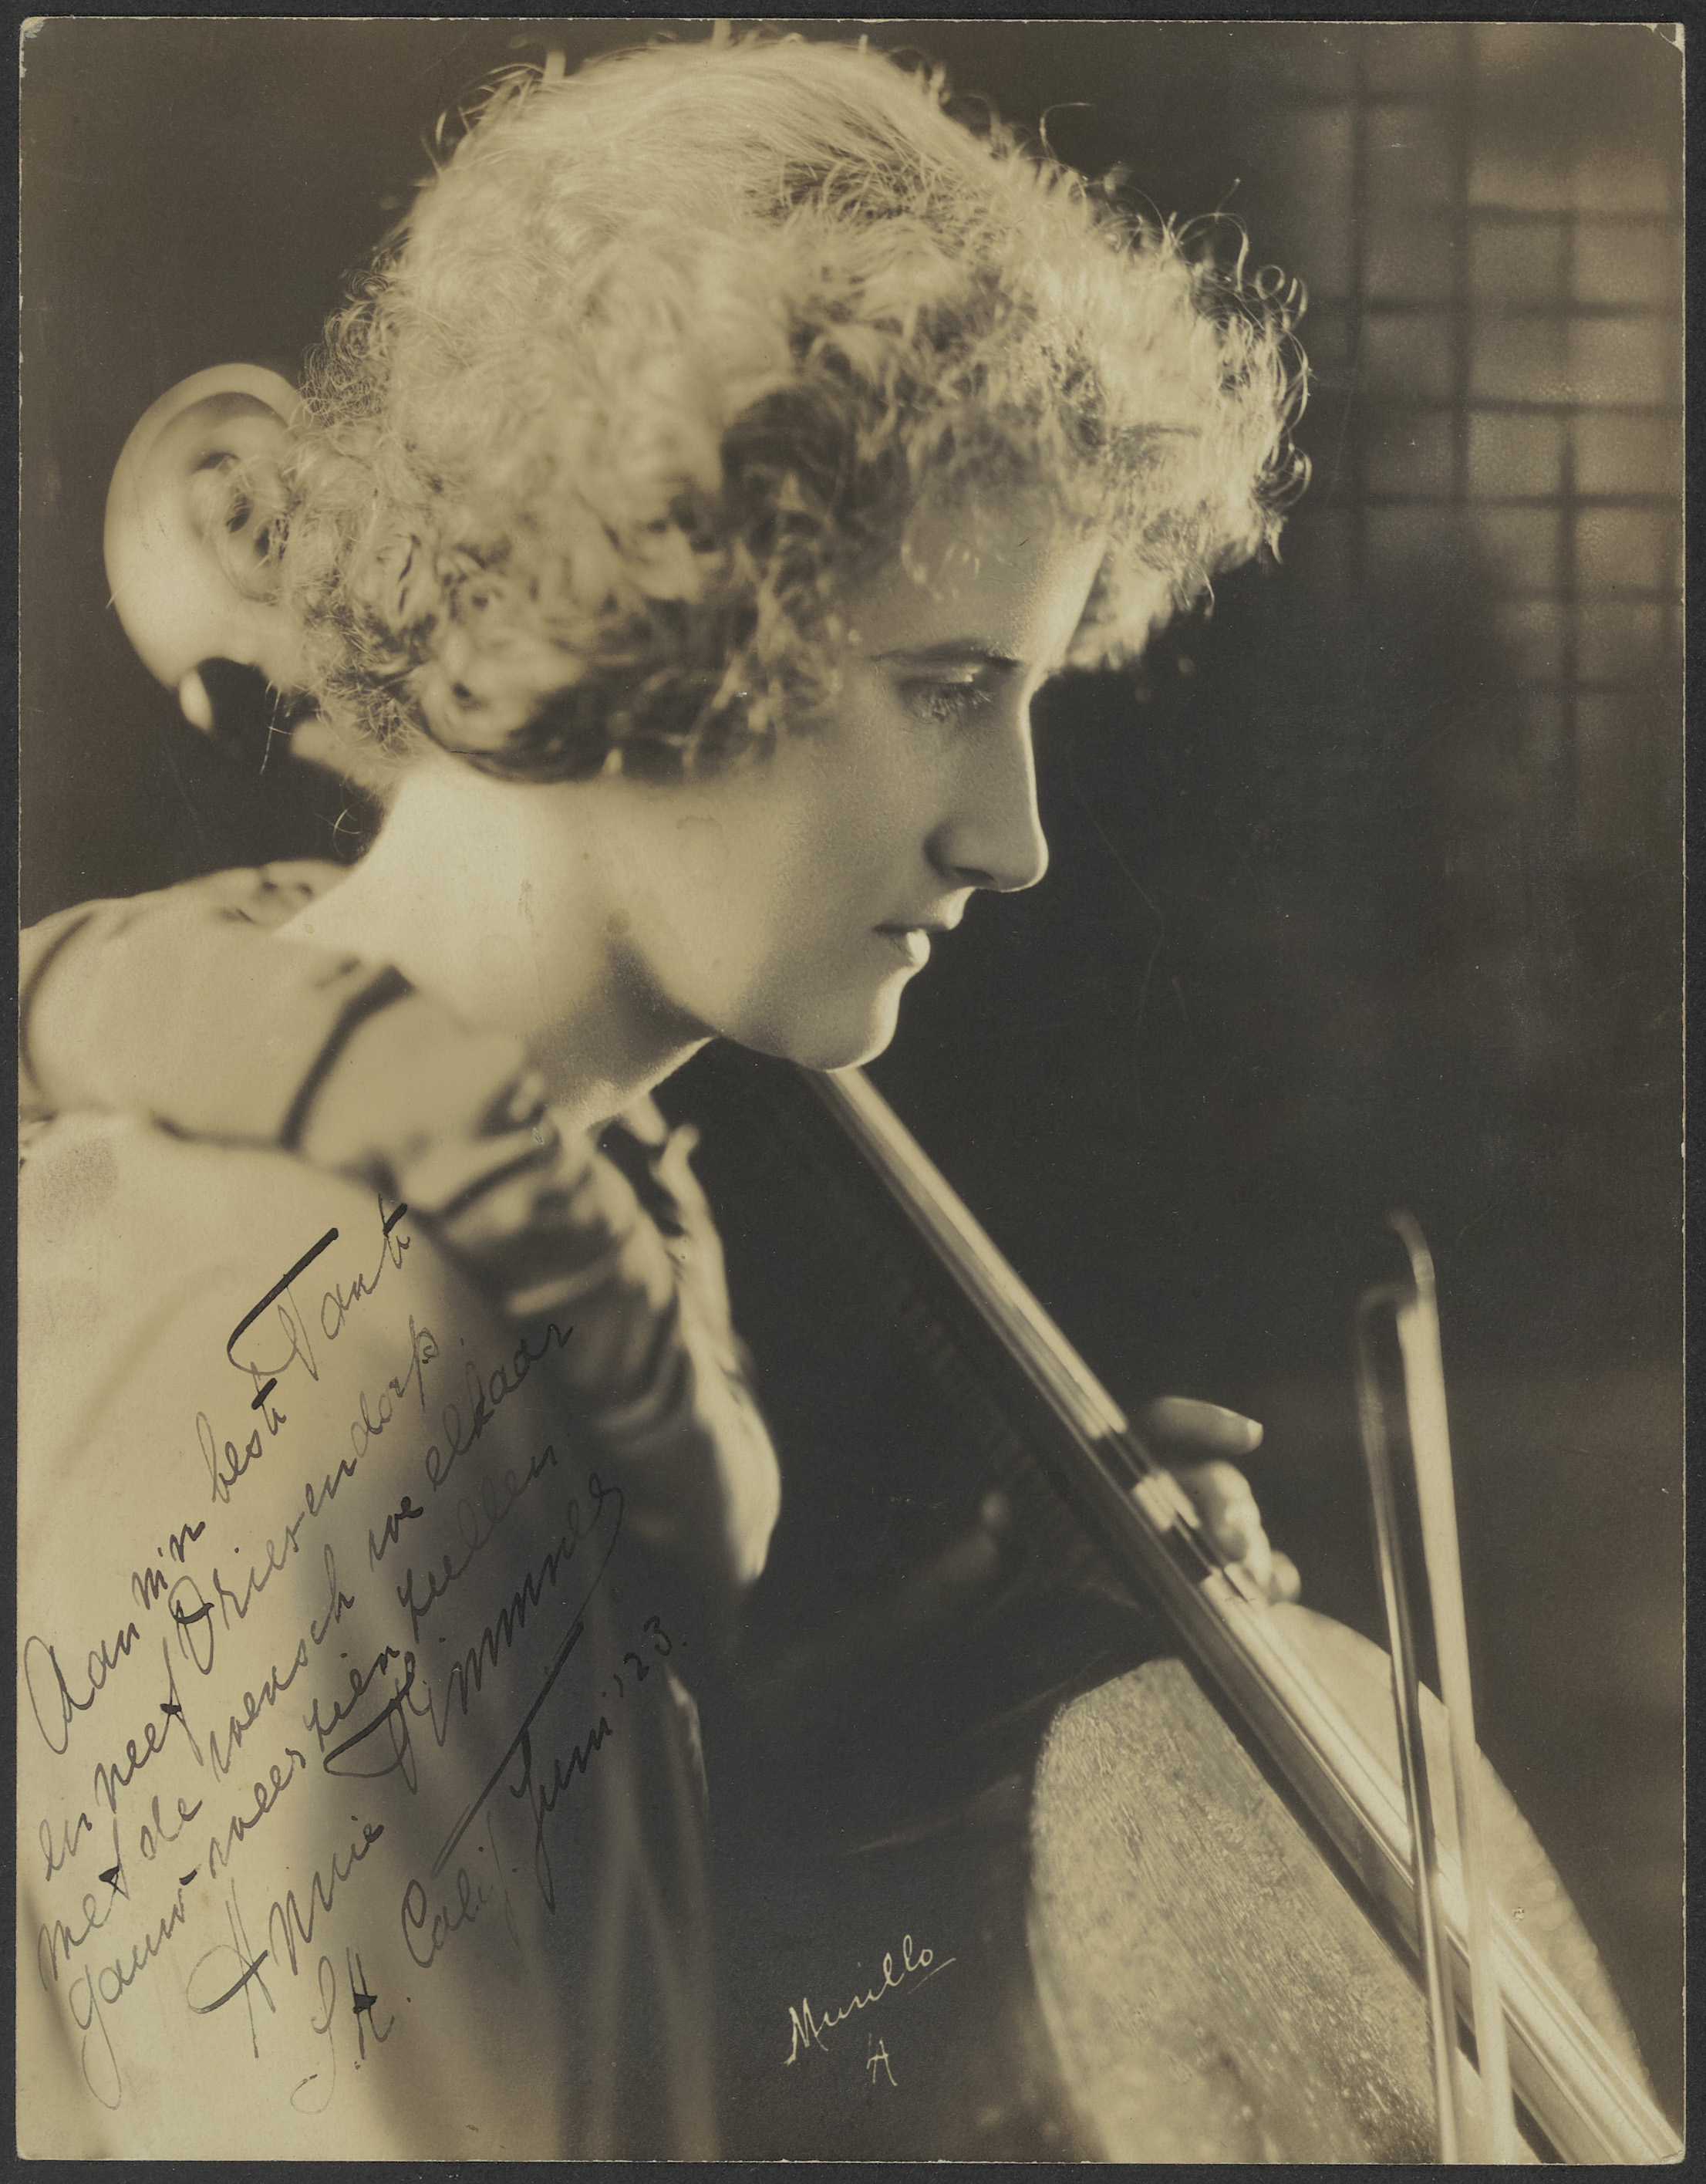 Aan mijn beste Tante
en neef Driesendorp.
met de wensch we elkaar
gauw weer zien zullen
Annie Timmner
St. H. Calif. Juni '23.
Murillo